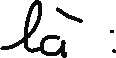 là :